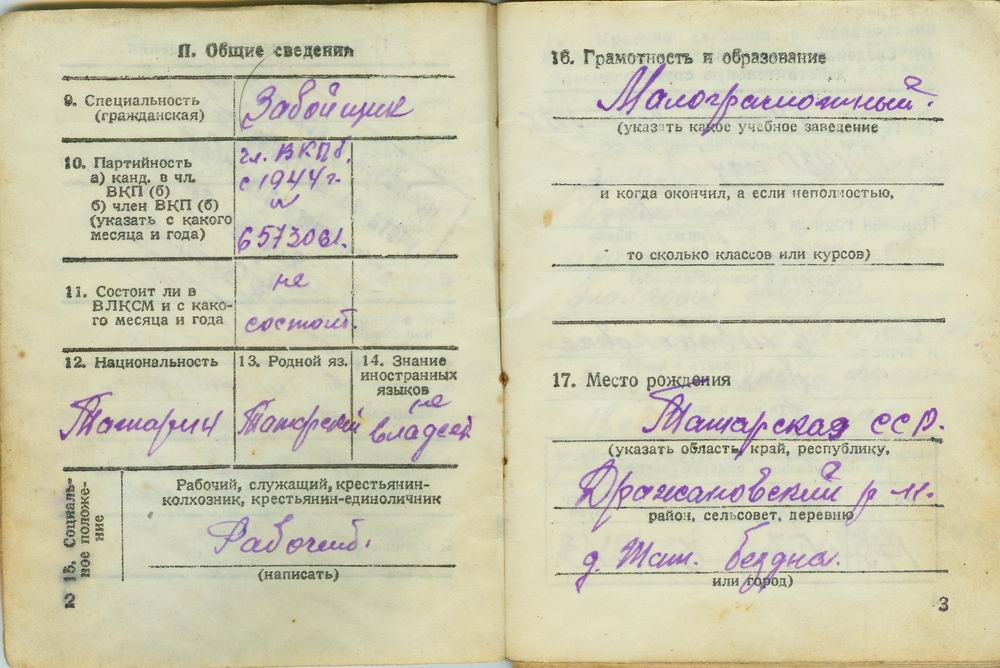 II. Общие сведения
9. Специальность
(гражданская)
Забойщик
10. Партийность
а) канд. в чл.
ВКП (б)
б) член ВКП (б)
(указать с какого
месяца и года)
чл. ВКПб.
с 1944 г.
11. Состоит ли в
ВЛКСМ и с како-
го месяца и года
не
состоит.
12. Национальность
Татарин
13. Родной яз.
Татарский
14. Знание
иностранных
языков
не
владеет
15. Социаль-
ное положе-
ние
Рабочий, служащий, крестьянин-
колхозник, крестьянин-единоличник
Рабочий.
(написать)
2
16. Грамотность и образование
Малограмотный.
(указать какое учебное заведение
и когда окончил, а если неполностью,
то сколько классов или курсов)
17. Место рождения
Татарская ССР.
(указать область, край, республику,
Дрожановский р-н.
район, сельсовет, деревню
д. Тат. бездна.
или город)
3